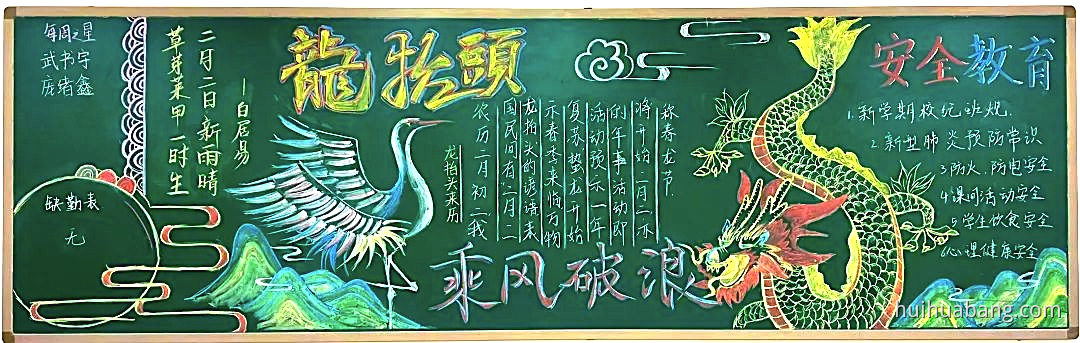 每周之星
武书宇
庞绪鑫
缺勤表
无
二月二日新雨晴
草芽菜甲一时生
—白居易
龍抬頭
龙抬头来历
农历二月初二我
国民间有“二月二
龙抬头的谚语表
示春季来临万物
复苏蛰龙开始
活动预示一年
的年事活动即
将开始二月二亦
称春龙节.
乘风破浪
安全教育
1.新学期校纪班规.
2 新型肺炎预防常识
3防火、防电安全
4课间活动安全
5学生饮食安全
6心理健康安全
huihuabang.com